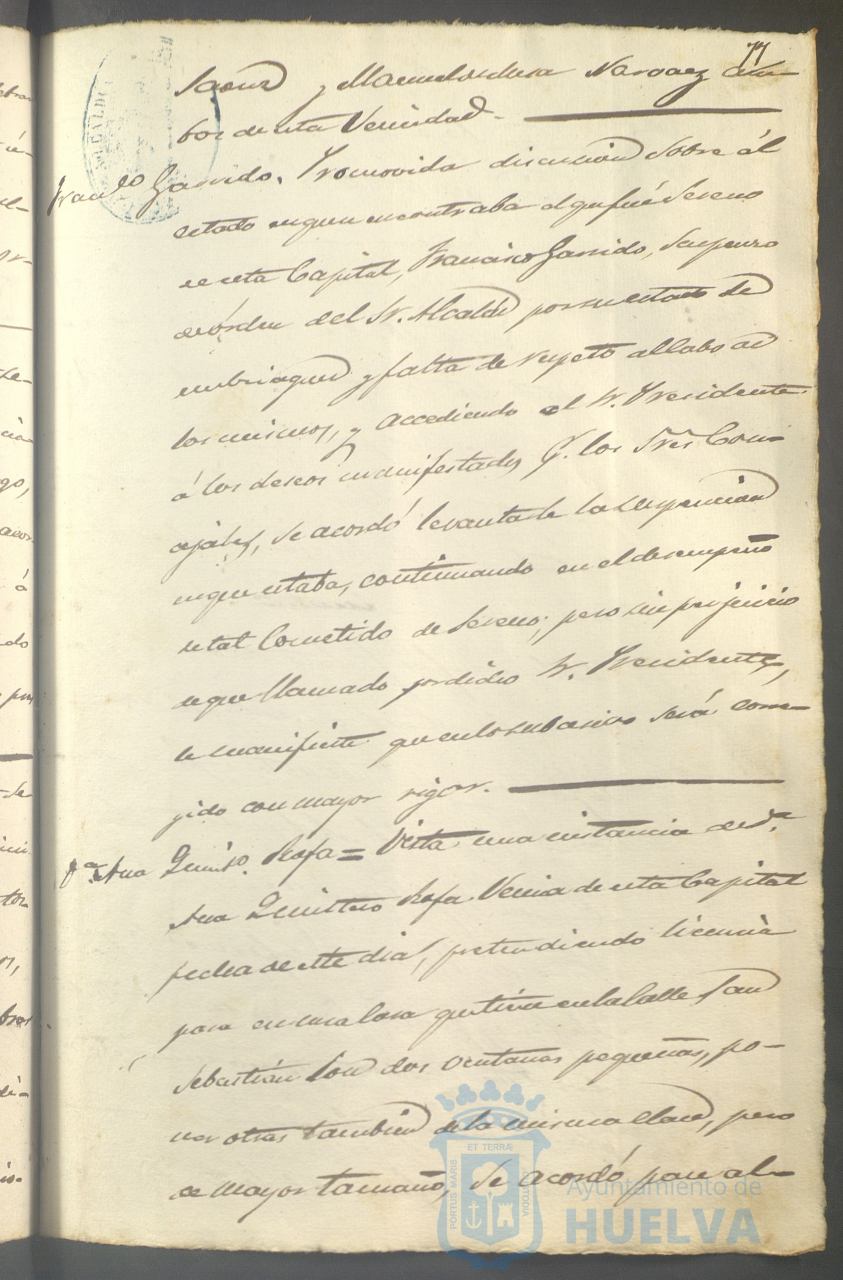 77
Saenz y Manuel Narvaez am-
bos de esta Vecindad.
Franco Garrido. Promovida discusion sobre ál
estado en que encontraba el que fué Sereno
de esta Capital, Francisco Garrido, suspenso
de órden del Sr. Alcalde por su estado de
embriagued y falta de respeto al Cabo de
los mismos, y accediendo el Sr. Presidente
á los deseos manifestados p. los Sres Con-
cejales, se acordó levantarle la suspencion
en que estaba, continuando en el desempeño
de tal Cometido de Sereno; pero sin perjuicio
de que llamado por dicho Sr. Presidente,
le manifieste que en lo subcesivo será corre-
jido con mayor rigor.
Da. Ana Quinto. Rofa = Vista una instancia de Da.
Ana Quintero Rofa Vecina de esta Capital
fecha de este dia, pretendiendo licencia
para en una Casa que tiene en la Calle San
Sebastián con dos ventanas pequeñas, po-
ner otras tambien de la misma clase, pero
de mayor tamaño, se acordó pase al-
ALCALDI
ET TERRÆ
PORTUS MARIS
CUSTODIA
Ayuntamiento de
HUELVA